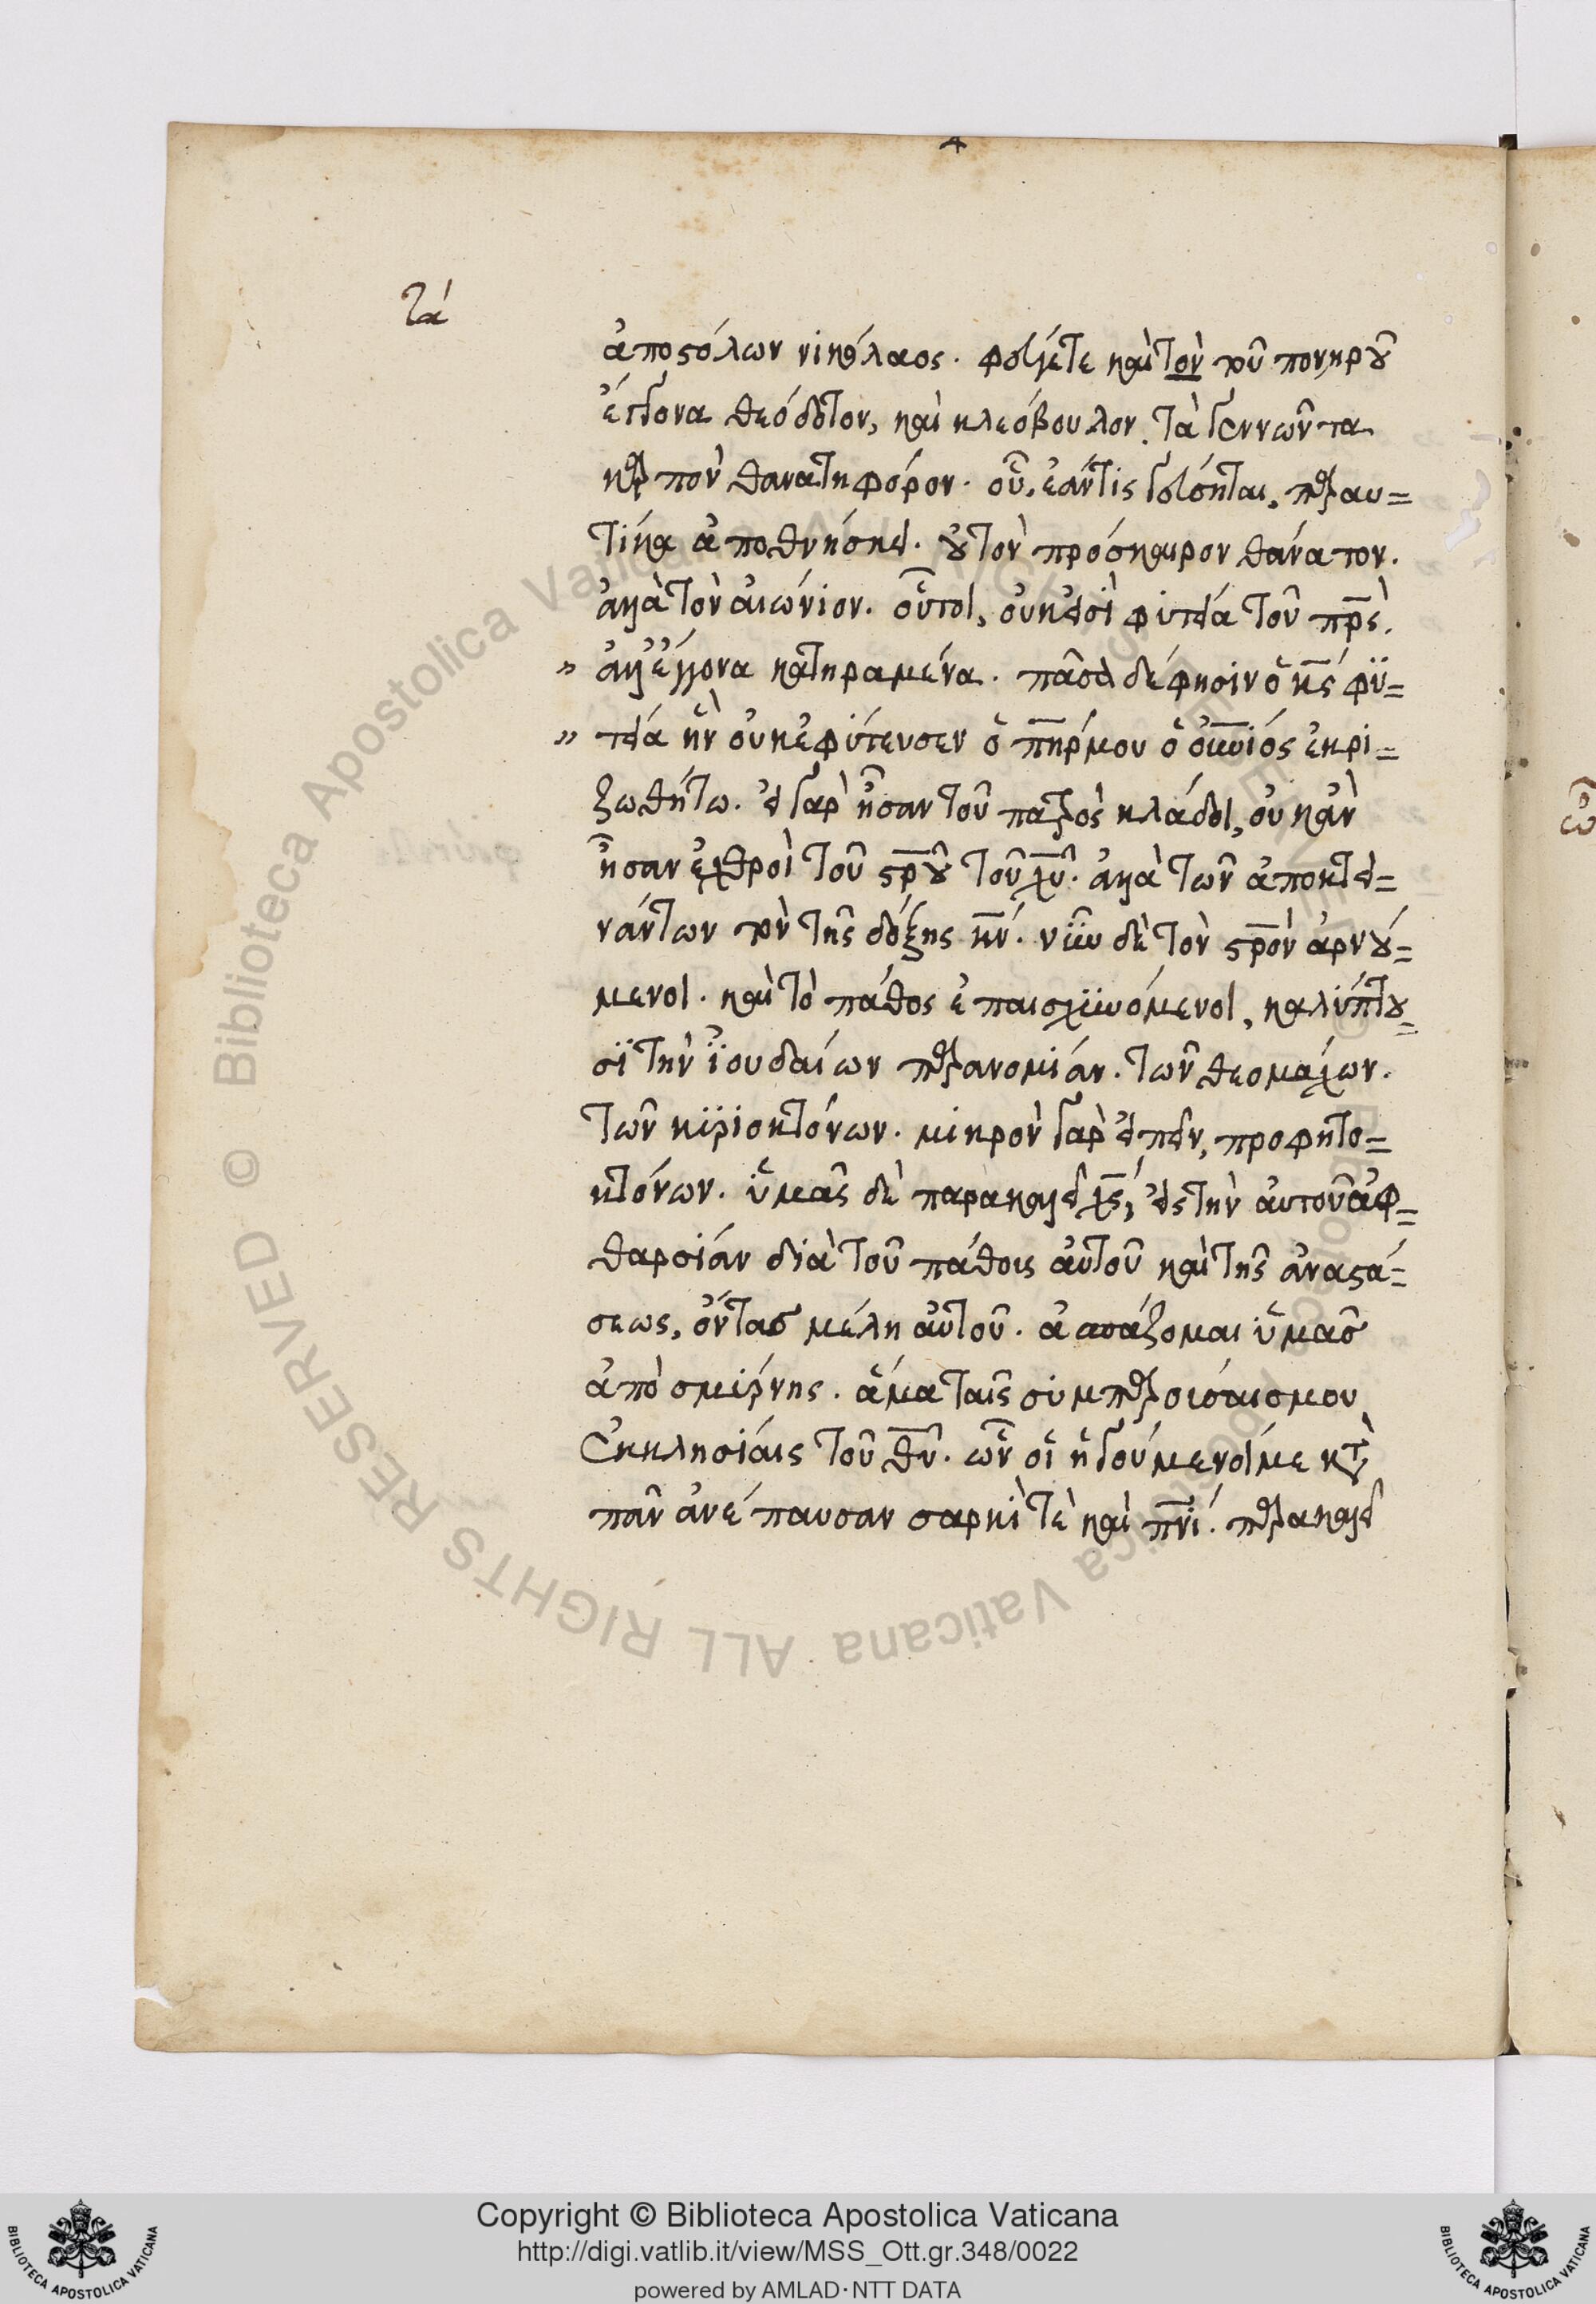 τά
ἀποστόλων νικόλαος. φεύγετε καὶ τὸν τοῦ πονηροῦ
ἔγγονα θεόδοτον, καὶ κλεόβουλον. τὰ γεννῶντα
καρπὸν θανατηφόρον. οὗ, ἐάν τις γεύσηται, παραυ=
τίκα ἀποθνήσκει. οὐ τὸν πρόσκαιρον θάνατον.
ἀλλὰ τὸν αἰώνιον. οὗτοι, οὐκ εἰσὶ φυτεία τοῦ πρς.
„ ἀλλ' ἔγγονα κατηραμένα. πᾶσα δέ φησιν ὁ κς φυ=
„ τεία ἣν οὐκ ἐφύτευσεν ὁ πηρ μου ὁ οὐνιός ἐκρι=
ζωθήτω. εἰ γὰρ ἦσαν τοῦ πατρὸς κλάδοι, οὐκ ἂν
ἦσαν ἐχθροὶ τοῦ σρου τοῦ χυ. ἀλλὰ τῶν ἀποκτει=
νάντων τὸν τῆς δόξης κν. νῦν δὲ τὸν σρον ἀρνού=
μενοι. καὶ τὸ πάθος ἐπαισχυνόμενοι, καλύπτου=
σι τὴν ἰουδαίων παρανομίαν. τῶν θεομάχων.
τῶν κυριοκτόνων. μικρὸν γὰρ εἰπεῖν, προφητο=
κτόνων. ὑμᾶς δὲ παρακαλεῖ χς, εἰς τὴν αὐτοῦ ἀφ=
θαρσίαν διὰ τοῦ πάθους αὐτοῦ καὶ τῆς ἀναστά=
σεως, ὄντας μέλη αὐτοῦ. ἀσπάζομαι ὑμᾶς
ἀπὸ σμύρνης. ἅμα ταῖς συμπαρούσαις μου
ἐκκλησίαις τοῦ θυ. ὧν οἱ ἡγούμενοί με κατὰ
πᾶν ἀνέπαυσαν σαρκί τε καὶ πνι. παρακαλεῖ
ὦ
© Biblioteca Apostolica Vaticana ALL RIGHTS RESERVED
Copyright © Biblioteca Apostolica Vaticana
http://digi.vatlib.it/view/MSS_Ott.gr.348/0022
powered by AMLAD·NTT DATA
BIBLIOTECA APOSTOLICA VATICANA
BIBLIOTECA APOSTOLICA VATICANA